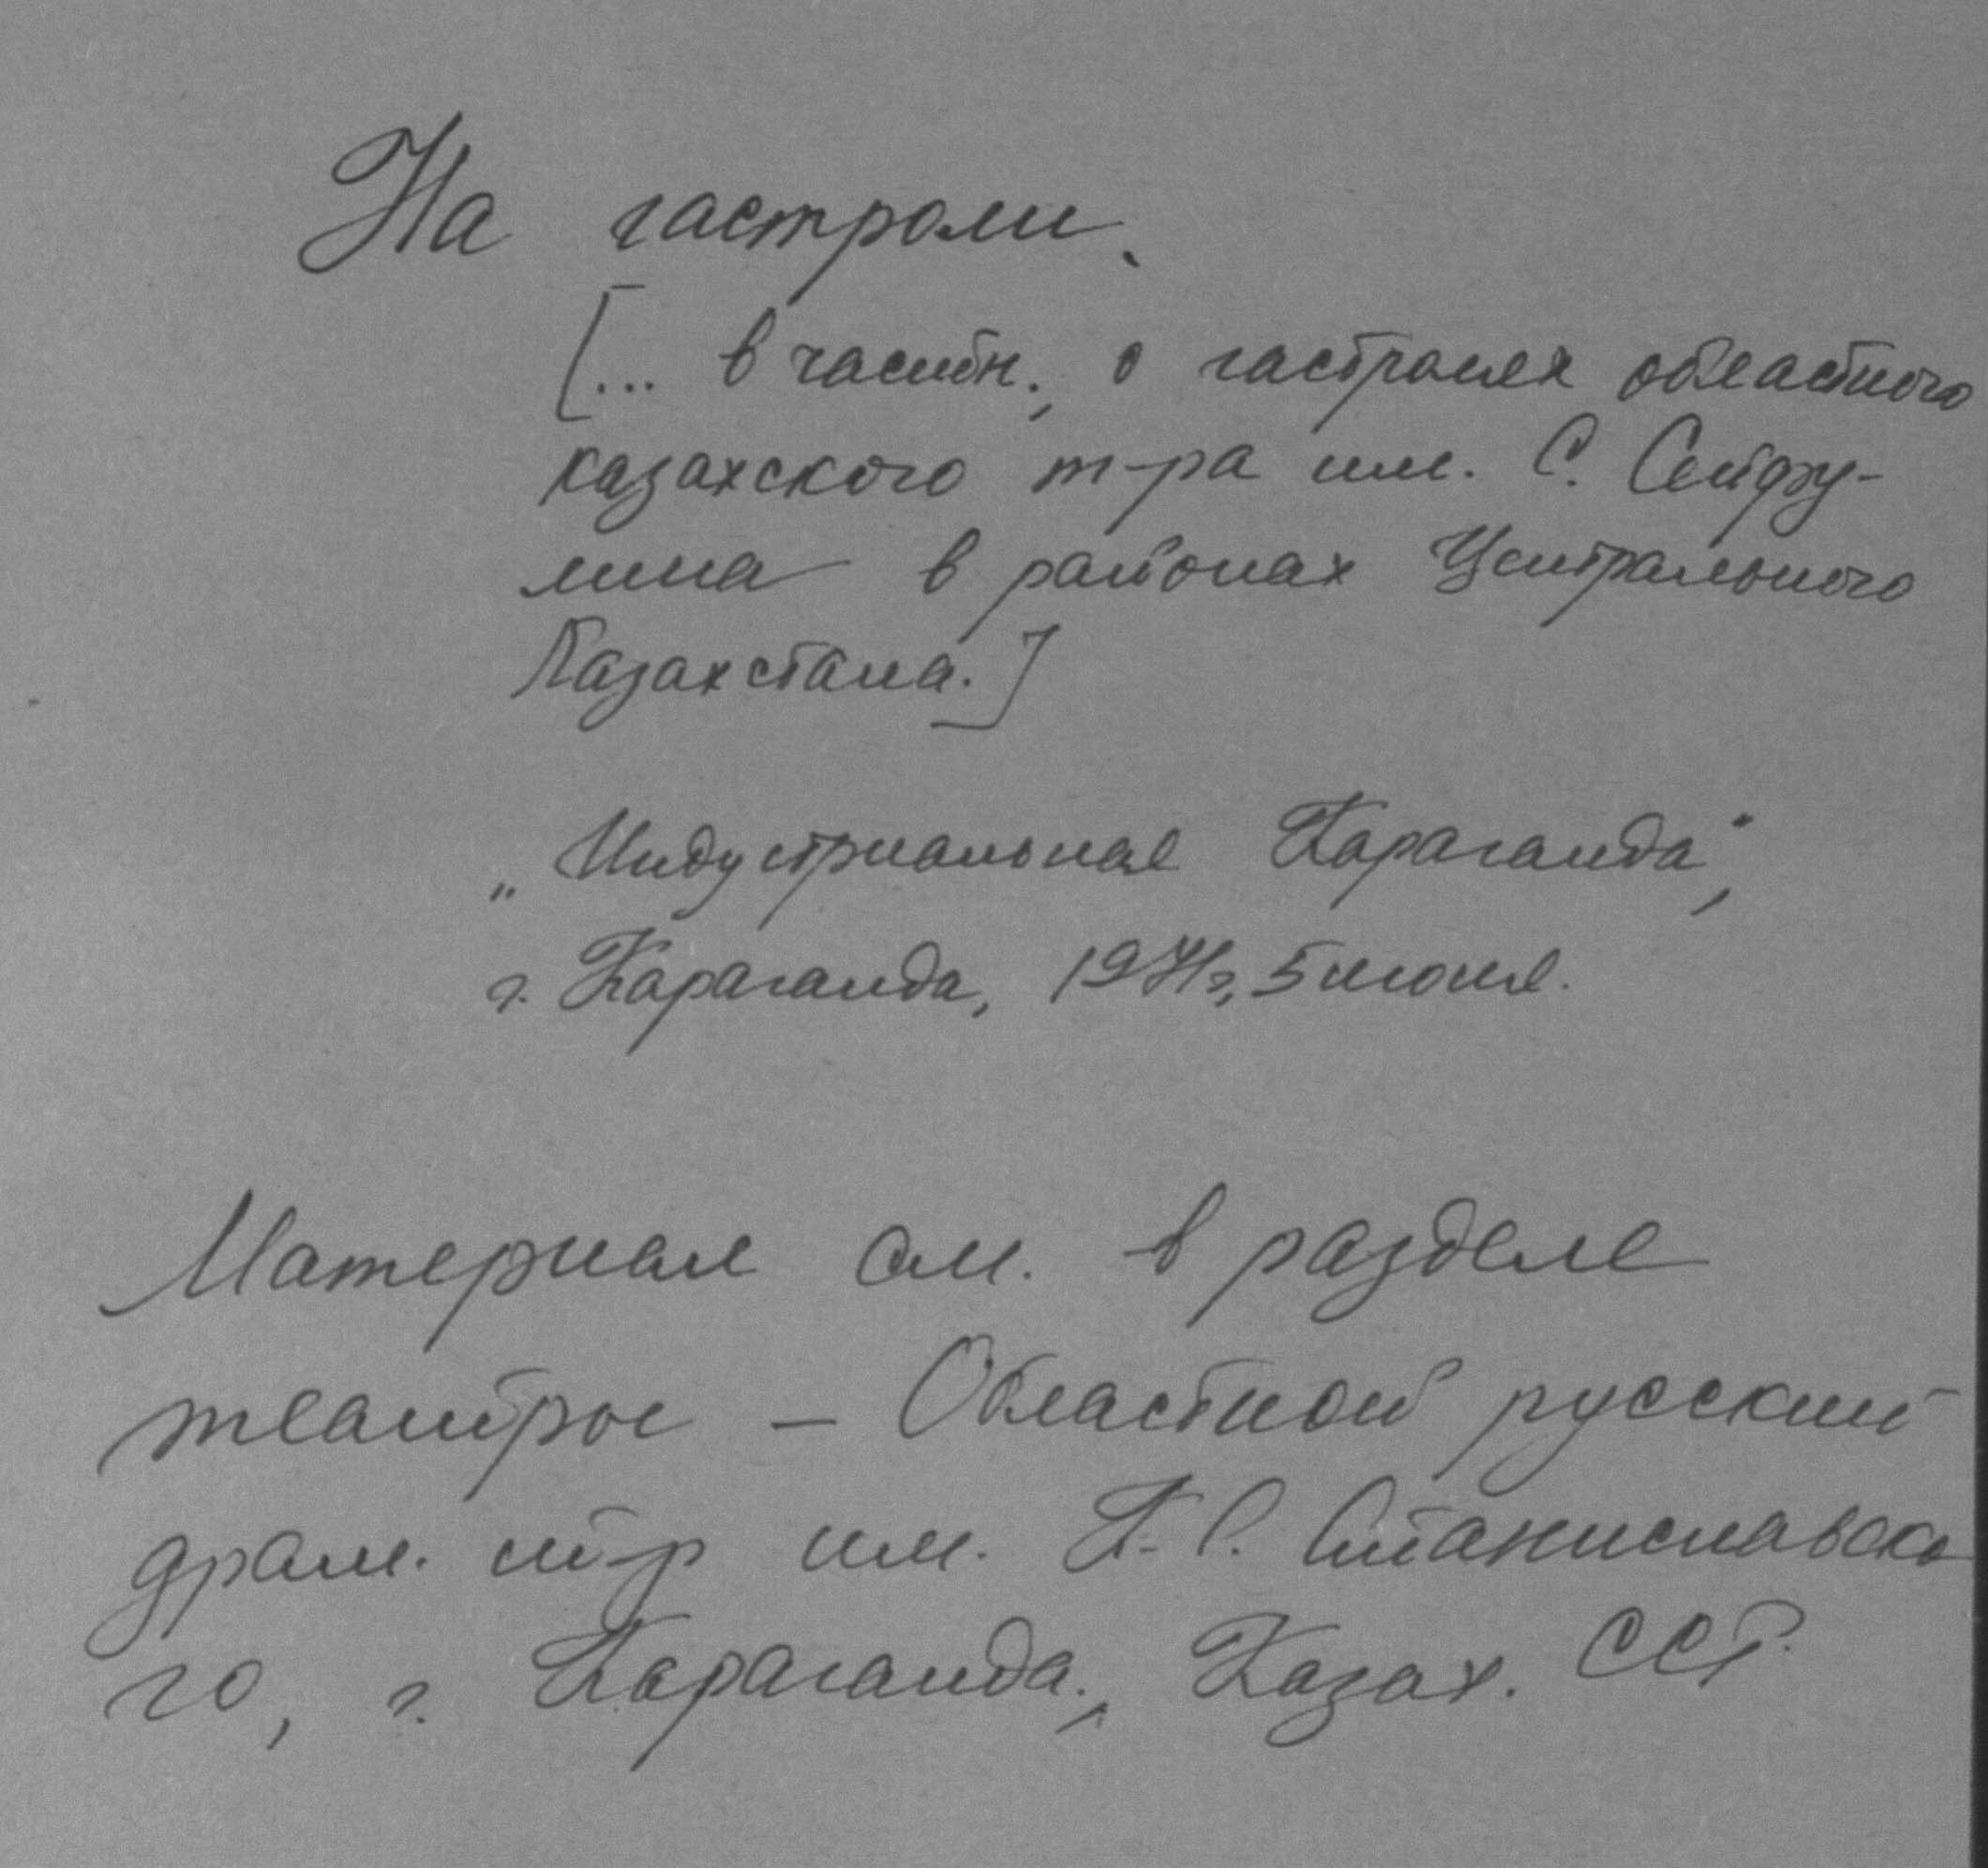 На гастроли.
[... в частн., о гастролях областного
казахского т-ра им. С. Сейфу-
лина в районах Центрального
Казахстана.]
„Индустриальная Караганда",
г. Караганда, 1971г., 5 июня.
Материал см. в разделе
театры – Областной русский
драм. т-р им. К. С. Станиславско
го, г. Караганда, Казах. ССР.